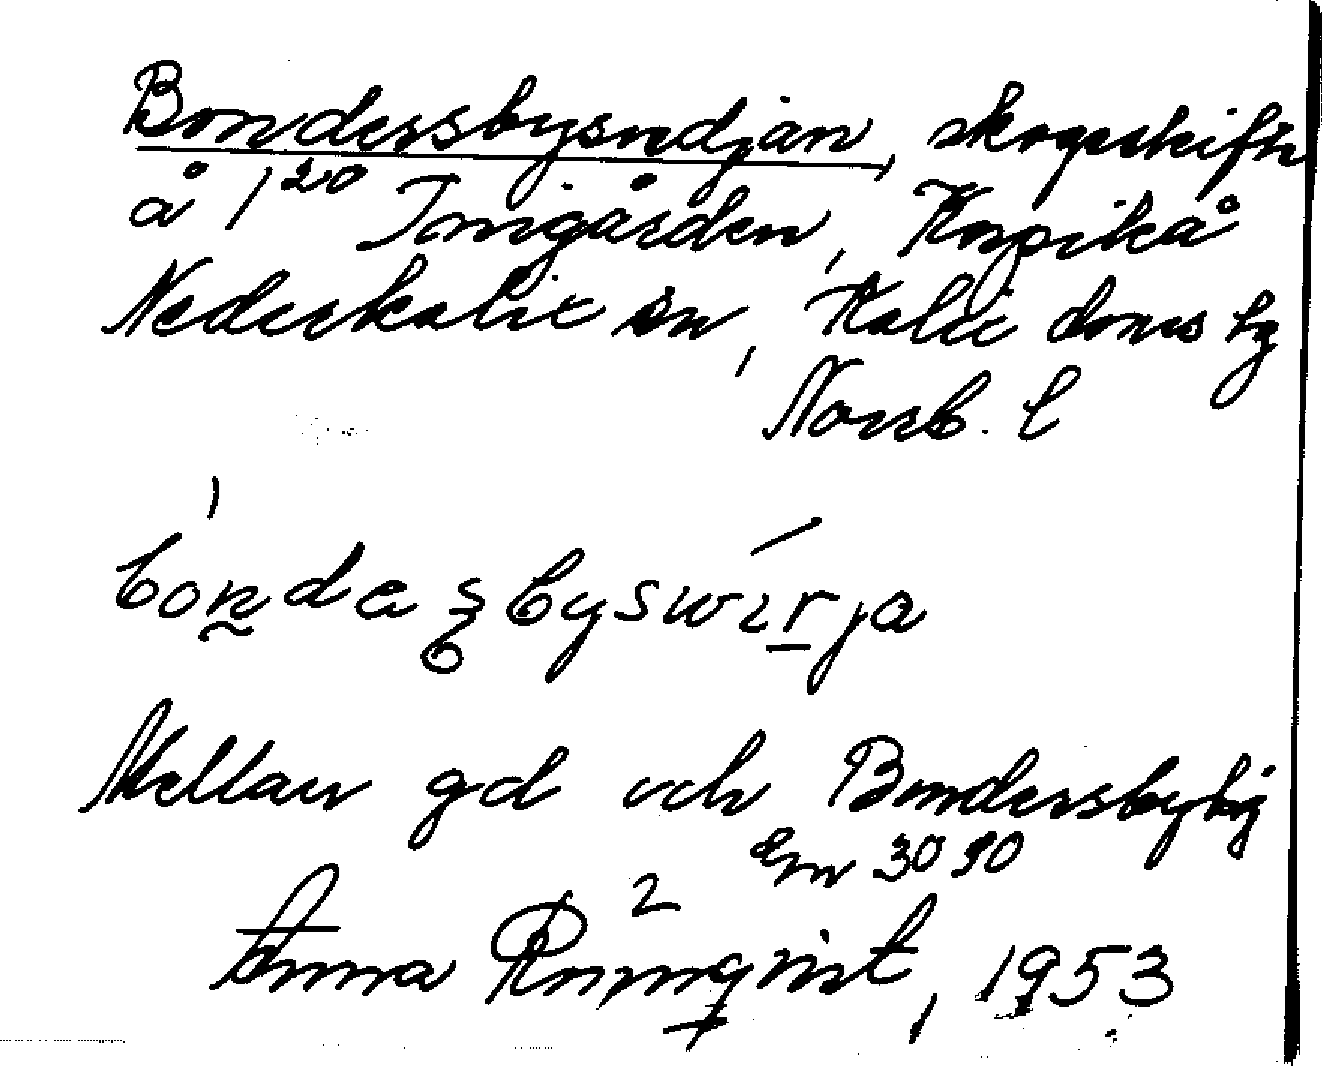 Bondersbysvedjan, skogsskifte
å 1²⁰ Jonsgården, Korpikå
Nederkalix sn, Kalix doms hg
Norrb. l
bondeʂbyswirja
Mellan gd och Bondersbyhg
Em 3090
2
Anna Rönnqvist, 1953